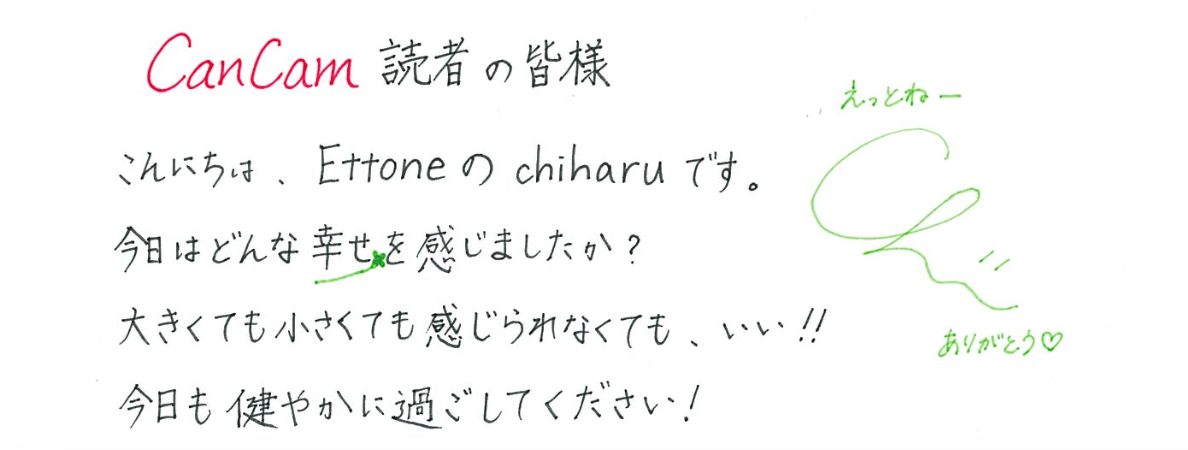 CanCam 読者の皆様
こんにちは、Ettoneのchiharuです。
今日はどんな幸せを感じましたか?
大きくても小さくても感じられなくても、いい!!
今日も健やかに過ごしてください!
えっとねー
ありがとう♡